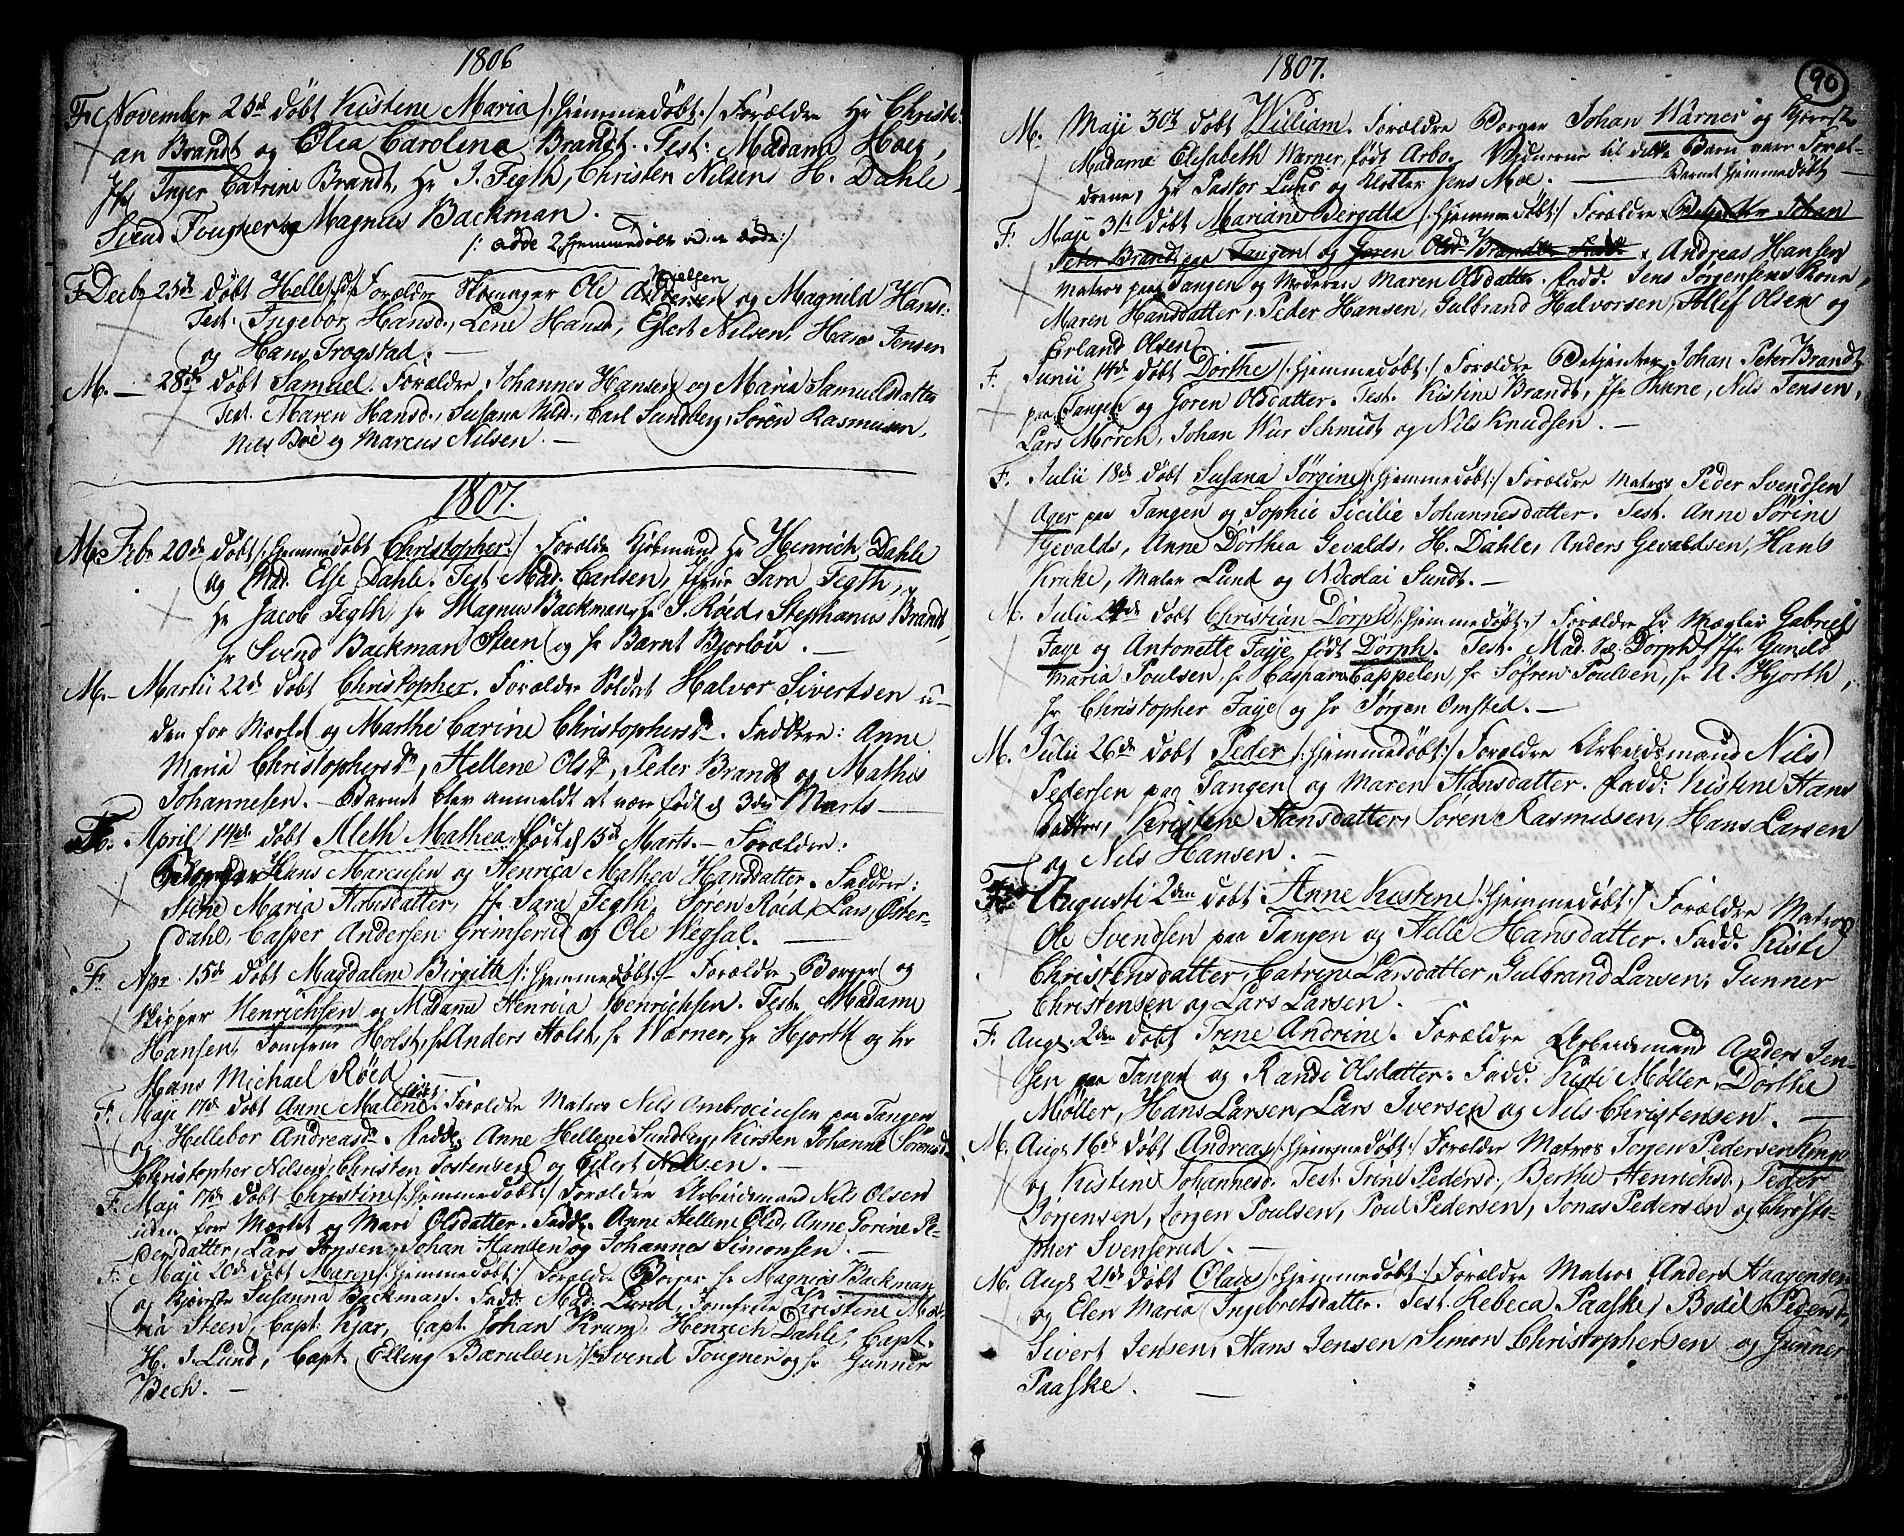 1806
F. November 25d døbt Kistene Maria /: hjemmedøbt :/ Forældre Hr Christi-
an Brandt og Olea Carolina Brandt. Test: Madame Hoeg,
Jfr Inger Catrine Brandt, Hr J. Tegth, Christen Nilsen, H. Dahle
Svend Tougner og Magnus Backman.
F. Decbr 25d døbt Helle Forældre Ole Nielsen og Magnild Hansd.
Test: Ingebor Hansd., Lene Hansd, Eylert Nilsen, Hans Jensen
og Hans Trogstad. —
M. — 28de døbt Samuel. Forældre Johannes Hansen og Maria Samuelsdatter
Test. Maren Hansd., Susana Nilsd., Carl Sundberg, Søren Rasmusen,
Nils Boe og Marcus Nilsen. —
1807.
M. Febr 20de døbt /: hjemmedøbt Christopher :/ Forældre Kiøbmand Hr Henrich Dahle
og Mad. Else Dahle. Test. Mad. Carlsen, Jfrue Sara Tegth,
Hr Jacob Tegth, hr Magnus Backman, hr S. Røed, Stephanus Brandt,
hr Svend Backman Steen og hr Barnt Bjorlow. —
M. — Martii 22de døbt Christopher. Forældre Soldat Halvor Sivertsen u-
den for Mærket og Marthe Carine Christophersd. Faddere: Anne
Maria Christophersd., Hellene Olsd., Peder Brandt og Mathis
Johannesen. — Barnet blev anmeldt at være født d 3die Marts —
F. April 14de døbt Aleth Mathea, født d 15d Marts. — Forældre:
Hans Marcusen og Henrica Mathea Hansdatter. Faddere:
Stine Maria Hansdatter, Jfr Sara Tegth, Søren Røed, Lars Øster-
dahl, Casper Andersen Grimserud og Ole Wegsal. —
F. Apr 15de døbt Magdalene Birgitte /: hjemmedøbt :/ Forældre Borger og
Skipper Henrichsen og Madame Henrica Henrichsen. Test. Madame
Hansen, Jomfrue Holst, hr Anders Holst, hr Warner, Hr Hjorth og hr
Hans Michael Røed. —
F. Maji 17d døbt Anne Malene. Forældre Matros Nils Ambrociusen paa Tangen
og Hellebor Andreasd. Fadd. Anne Hellene Sundberg, Kirsten Johanne Sørensd.,
Christopher Nilsen, Christen Tostensen og Eilert Nilsen. —
F. Maji 17de døbt Christine /: hjemmedøbt :/ Forældre Arbeidsmand Nils Olsen
uden for Mærket og Mari Olsdatter. Fadd. Anne Hellene Olsd, Anne Torine Pe-
dersdatter, Lars Jensen, Johan Hansen og Johannes Simonsen. —
F. Maji 20de døbt Maren /: hjemmedøbt :/ Forældre Borger hr Magnus Backman
og Kjereste Susanna Backman. Fadd: Mad. Lund, Jomfrue Kristine Ma-
ria Steen, Capt: Kjær, Capt. Johan Krum, Henrich Dahle, Capt.
H. J. Lund, Capt. Elling Bærulsen, hr Svend Tougner og hr Gunner
Bech. —
1807.
90
M. Maji 30t døbt William. Forældre Borger Johan Warner og Kjereste
Madame Elisabeth Warner, født Arbo. Vidnerne til dette Barn vare Foræl-
drene, Hr Pastor Lund og Klokker Jens Moe. — Barnet hjemmedøbt —
F. Maji 31t døbt Mariane Bergitte /: hjemmedøbt :/ Forældre Betjenter Johan
Peter Brandt paa Tangen og Goren Olsd. Andreas Hansen
Matros paa Tangen og Moderen Maren Olsdatter. Fadd. Jens Jørgensens Kone,
Maren Hansdatter, Peder Hansen, Gulbrand Halvorsen, Tollef Olsen og
Erland Olsen. —
F. Junii 14de døbt Dorthe /: hjemmedøbt :/ Forældre Betjenter Johan Peter Brandt
paa Tangen og Goren Olsdatter. Test. Kistine Brandt, Jfr Thune, Nils Jensen,
Lars Mørch, Johan Wur Schmidt og Nils Knudsen. —
F. Julii 18de døbt Susana Jørgine /: hjemmedøbt :/ Forældre Matros Peder Svendsen
Ager paa Tangen og Sophie Sicilie Johannesdatter. Test. Anne Sørine
Gevalds, Anne Dorthea Gevalds, H. Dahle, Anders Gevaldsen, Hans
Kruke, Maler Lund og Nicolai Sundt. —
M. Julii 24de døbt Christian Dorph /: hjemmedøbt :/ Forældre hr Mægler Gabriel
Faye og Antonette Faye født Dorph. Test. Mad. Sal: Dorph, Jfr Gunild
Maria Poulsen, hr Haspara Cappelen, hr Søfren Poulsen, hr A. Hjorth,
hr Christopher Faye og hr Jørgen Omsted. —
M. Julii 26de døbt Peder /: hjemmedøbt :/ Forældre Arbeidsmand Nils
Pedersen paa Tangen og Maren Hansdatter. Fadd: Kistine Hans-
datter, Kirstene Hansdatter, Søren Rasmusen, Hans Larsen
og Nils Hansen. —
F. Augusti 2den døbt Anne Kistene /: hjemmedøbt :/ Forældre Matros
Ole Svendsen paa Tangen og Helle Hansdatter. Fadd. Kisti
Christensdatter, Catrine Larsdatter, Gulbrand Larsen, Gunner
Christensen og Lars Larsen.
F. Augs. 2den døbt Trene Andrine. Forældre Arbeidsmand Anders Jen-
sen paa Tangen og Randi Olsdatter. Fadd. Kisti Møller, Dorthe
Møller, Hans Larsen, Lars Iversen og Nils Christensen. —
M. Augs 16de døbt Andreas /: hjemmedøbt :/ Forældre Matros Jørgen Pedersen Kongo
og Kistine Johannesd. Test: Trine Pedersd., Berthe Henrichsd., Peder
Jørgensen, Jørgen Poulsen, Poul Pedersen, Jonas Pedersen og Christo-
pher Svenserud. —
M. Augs 21de døbt Claus /: hjemmedøbt :/ Forældre Matros Anders Haagensen
og Elen Maria Ingebretsdatter. Test. Rebeca Paaske, Bodil Pedersd.,
Sivert Jensen, Hans Jensen, Simon Christophersen og Gunner
Paaske. —